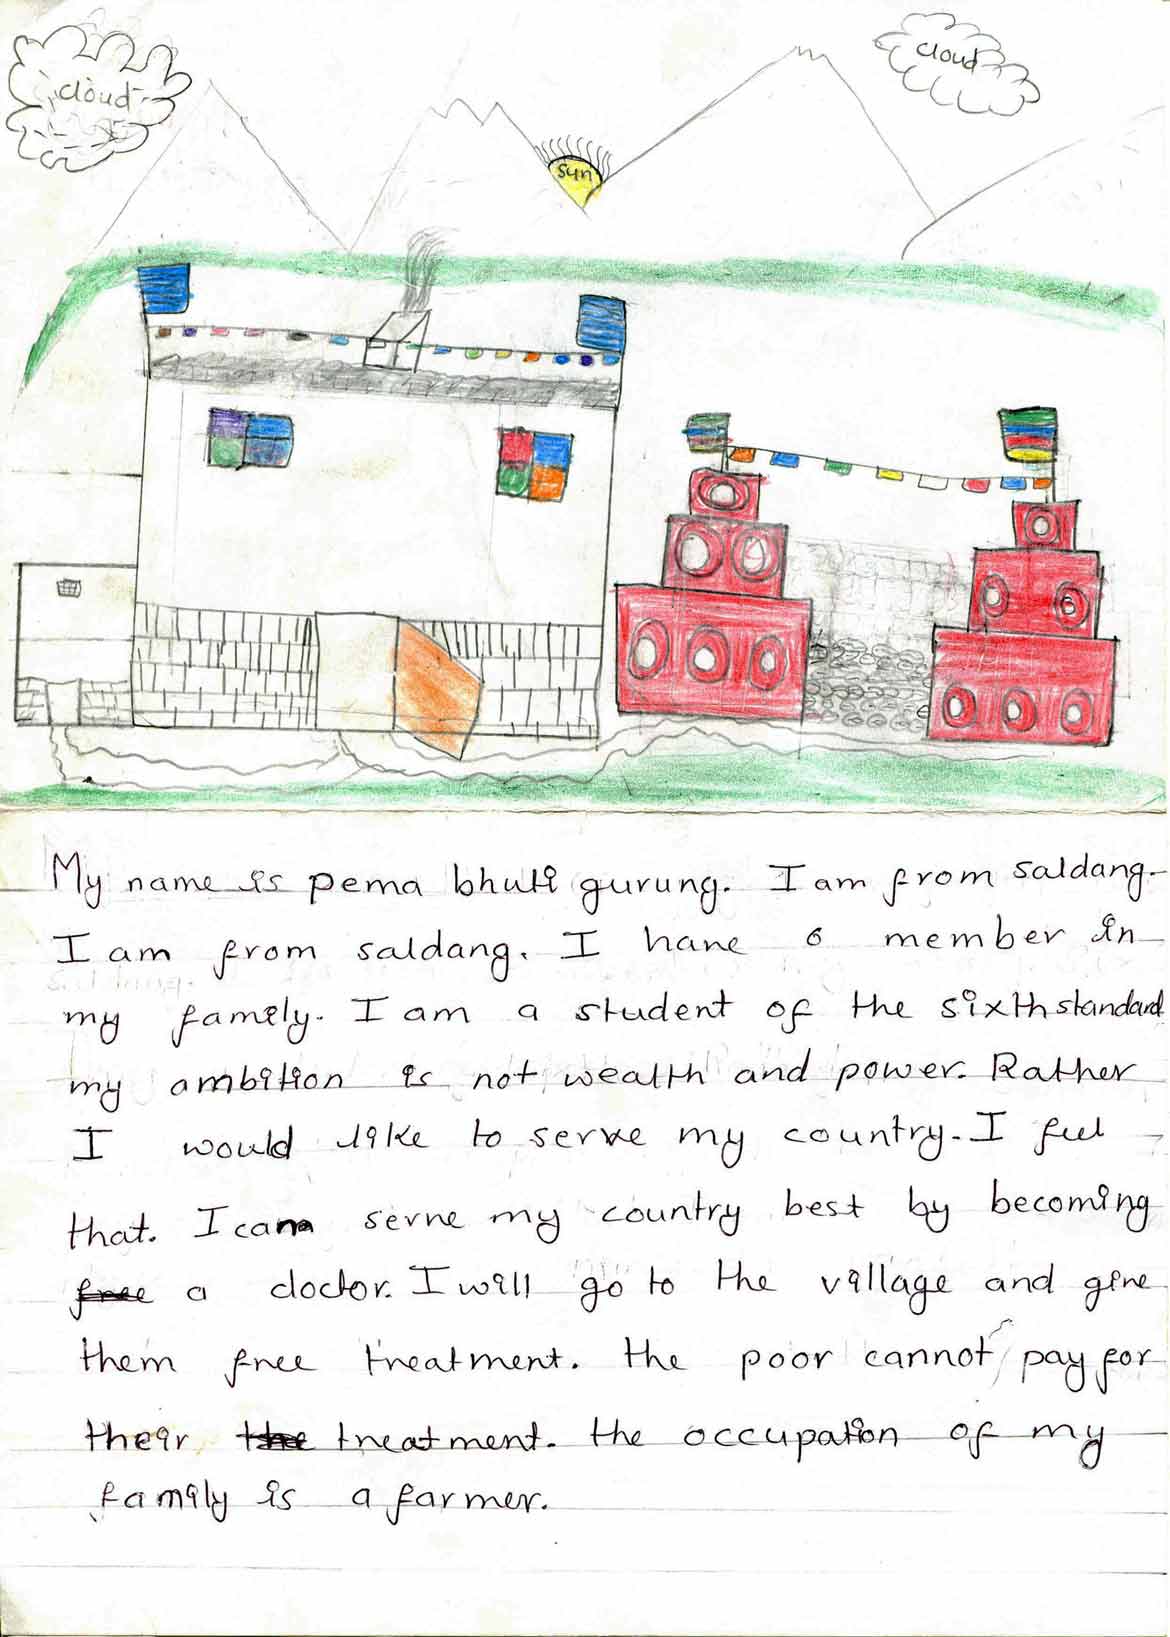 cloud
cloud
sun
My name is pema bhuti gurung. I am from saldang.
I am from saldang. I have 6 member in
my family. I am a student of the sixth standard
my ambition is not wealth and power. Rather
I would like to serve my country. I feel
that. I can serve my country best by becoming
free a doctor. I will go to the village and give
them free treatment. the poor cannot pay for
their the treatment. the occupation of my
family is a farmer.